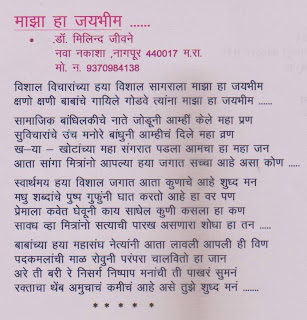 माझा हा जयभीम ......
• .डॉ. मिलिन्द जीवने
नवा नकाशा ,नागपूर 440017 म.रा.
मो. न. 9370984138
विशाल विचारांच्या हया विशाल सागराला माझा हा जयभीम
क्षणो क्षणी बाबांचे गायिले गोडवे त्यांना माझा हा जयभीम ......
सामाजिक बांधिलकीचे नाते जोडूनी आम्हीं केले महा प्रण
सुविचारांचे उंच मनोरे बांधुनी आम्हीचं दिले महा व्रण
ख–या – खोटांच्या महा संगरात पडला आमचा हा महा जन
आता सांगा मित्रांनो आपल्या हया जगात सच्चा आहे असा कोण .....
स्वार्थमय हया विशाल जगात आता कुणाचे आहे शुध्द मन
मधु शब्दांचे पुष्प गुफुंनी घात करतो आहे हा वर पण
प्रेमाला कवेत घेवूनी काय साधेल कुणी कसला हा कण
सावध व्हा मित्रांनो सत्याची पारख असणारा शोधा हा तन .....
बाबांच्या हया महासंघ नेत्यांनी आता लावली आपली ही विण
पदकमलांची माळ रोवुनी परंपरा चालवितो हा जान
अरे ती बरी रे निसर्ग निष्पाप मनांची ती पाखरं सुमनं
रक्ताचा थेंब अमुचाचं कमीचं आहे असे तुझे शुध्द मनं .......
* * * * *